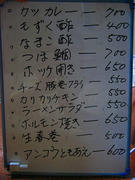 カツカレー 700
もずく酢 400
なまこ酢 500
つぼ鯛 700
ホッケ開き 650
チーズ豚巻フライ 550
カリカリチキン 550
ラーメンサラダー 550
ホルモン焼き 650
生春巻 500
アンコウともあえ 600